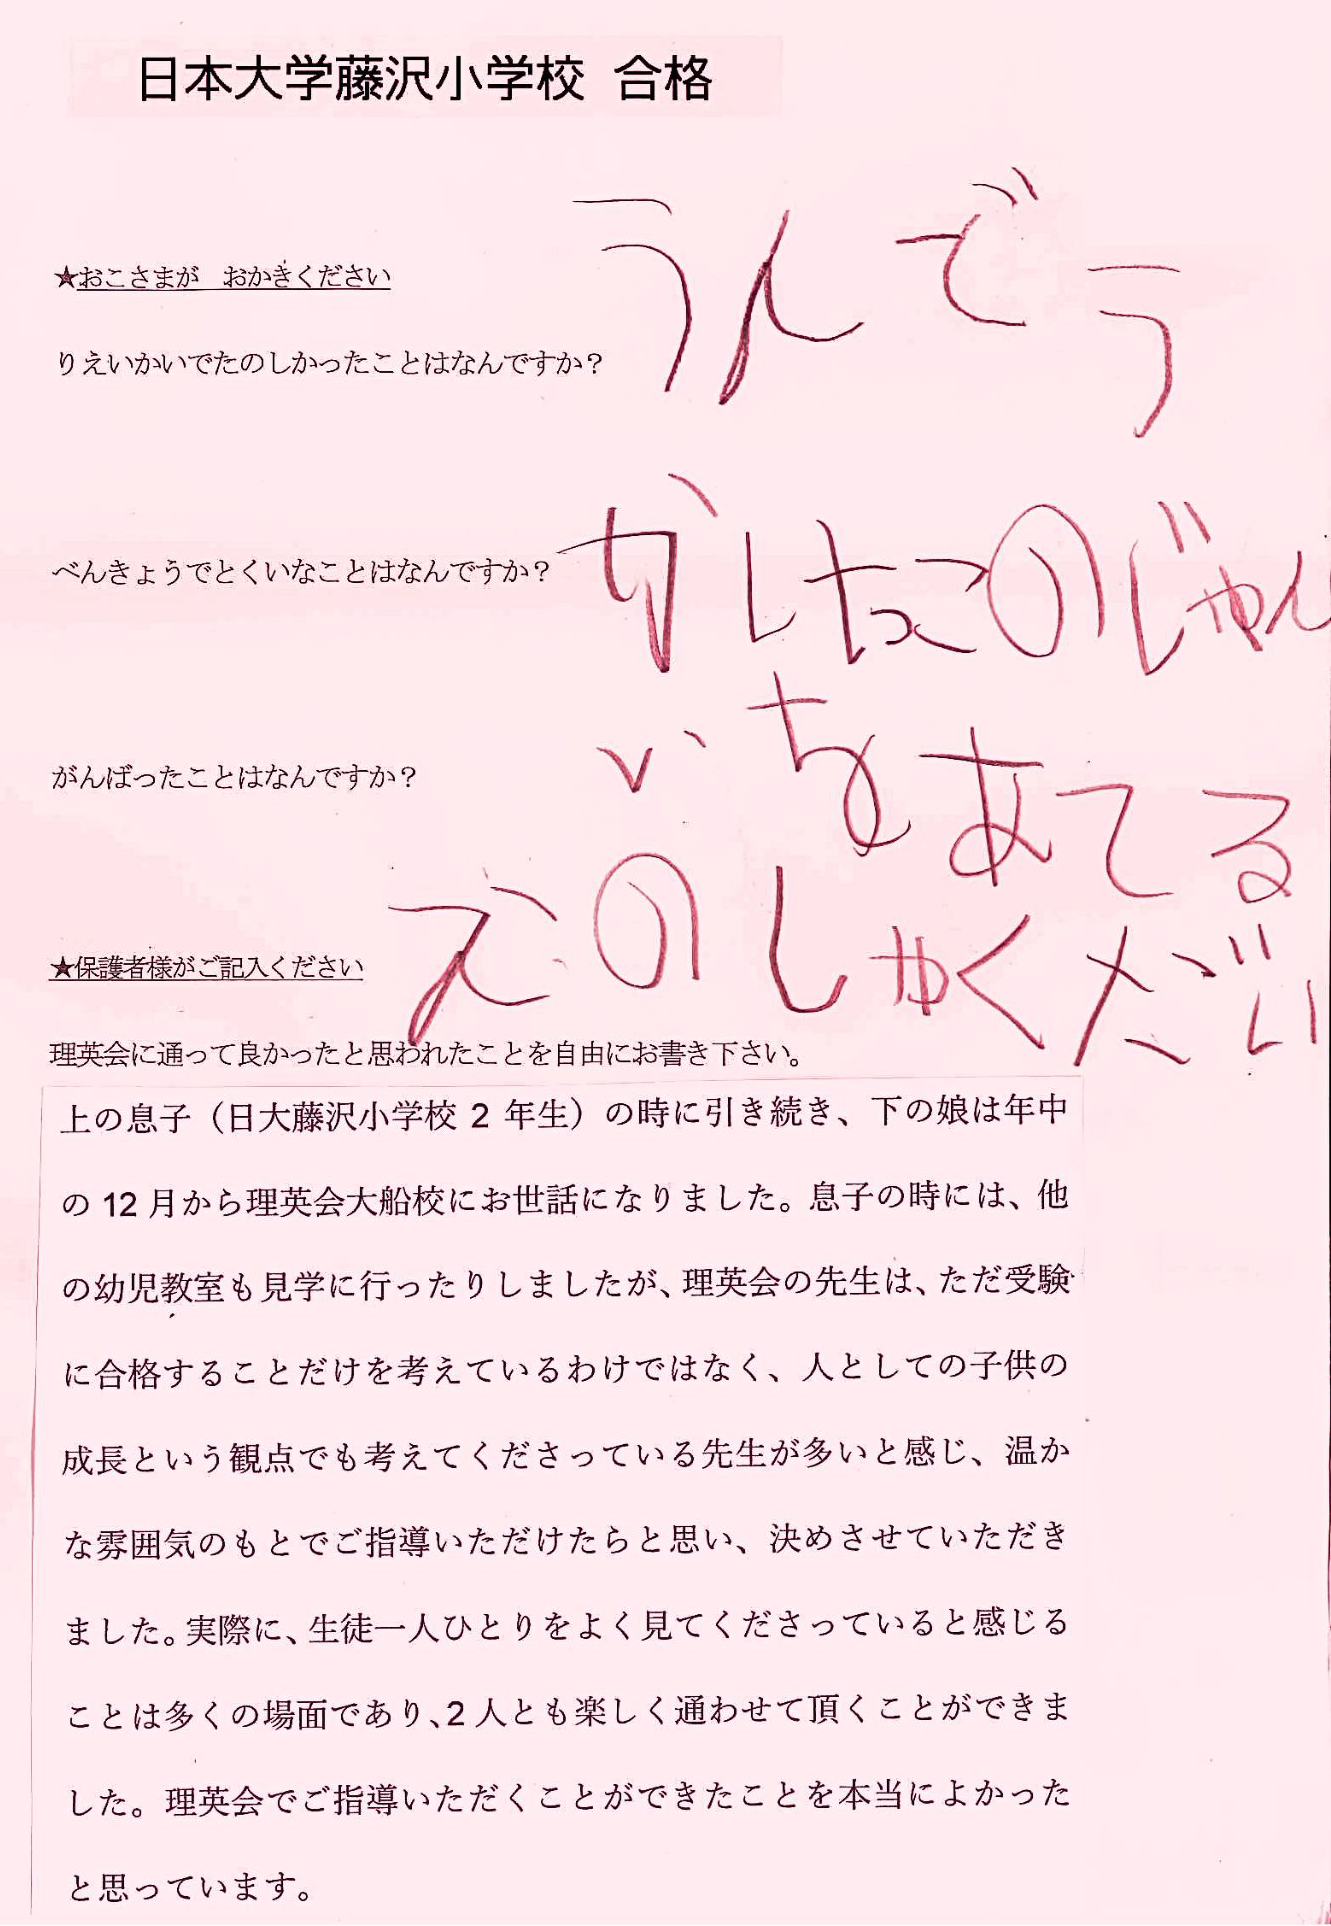 日本大学藤沢小学校 合格
★おこさまが おかきください
うんどう
りえいかいでたのしかったことはなんですか？
がしたこのじゅん
べんきょうでとくいなことはなんですか？
いちをあてる
がんばったことはなんですか？
えのしゅくだい
★保護者様がご記入ください
理英会に通って良かったと思われたことを自由にお書き下さい。
上の息子（日大藤沢小学校 2 年生）の時に引き続き、下の娘は年中
の 12 月から理英会大船校にお世話になりました。息子の時には、他
の幼児教室も見学に行ったりしましたが、理英会の先生は、ただ受験
に合格することだけを考えているわけではなく、人としての子供の
成長という観点でも考えてくださっている先生が多いと感じ、温か
な雰囲気のもとでご指導いただけたらと思い、決めさせていただき
ました。実際に、生徒一人ひとりをよく見てくださっていると感じる
ことは多くの場面であり、2 人とも楽しく通わせて頂くことができま
した。理英会でご指導いただくことができたことを本当によかった
と思っています。